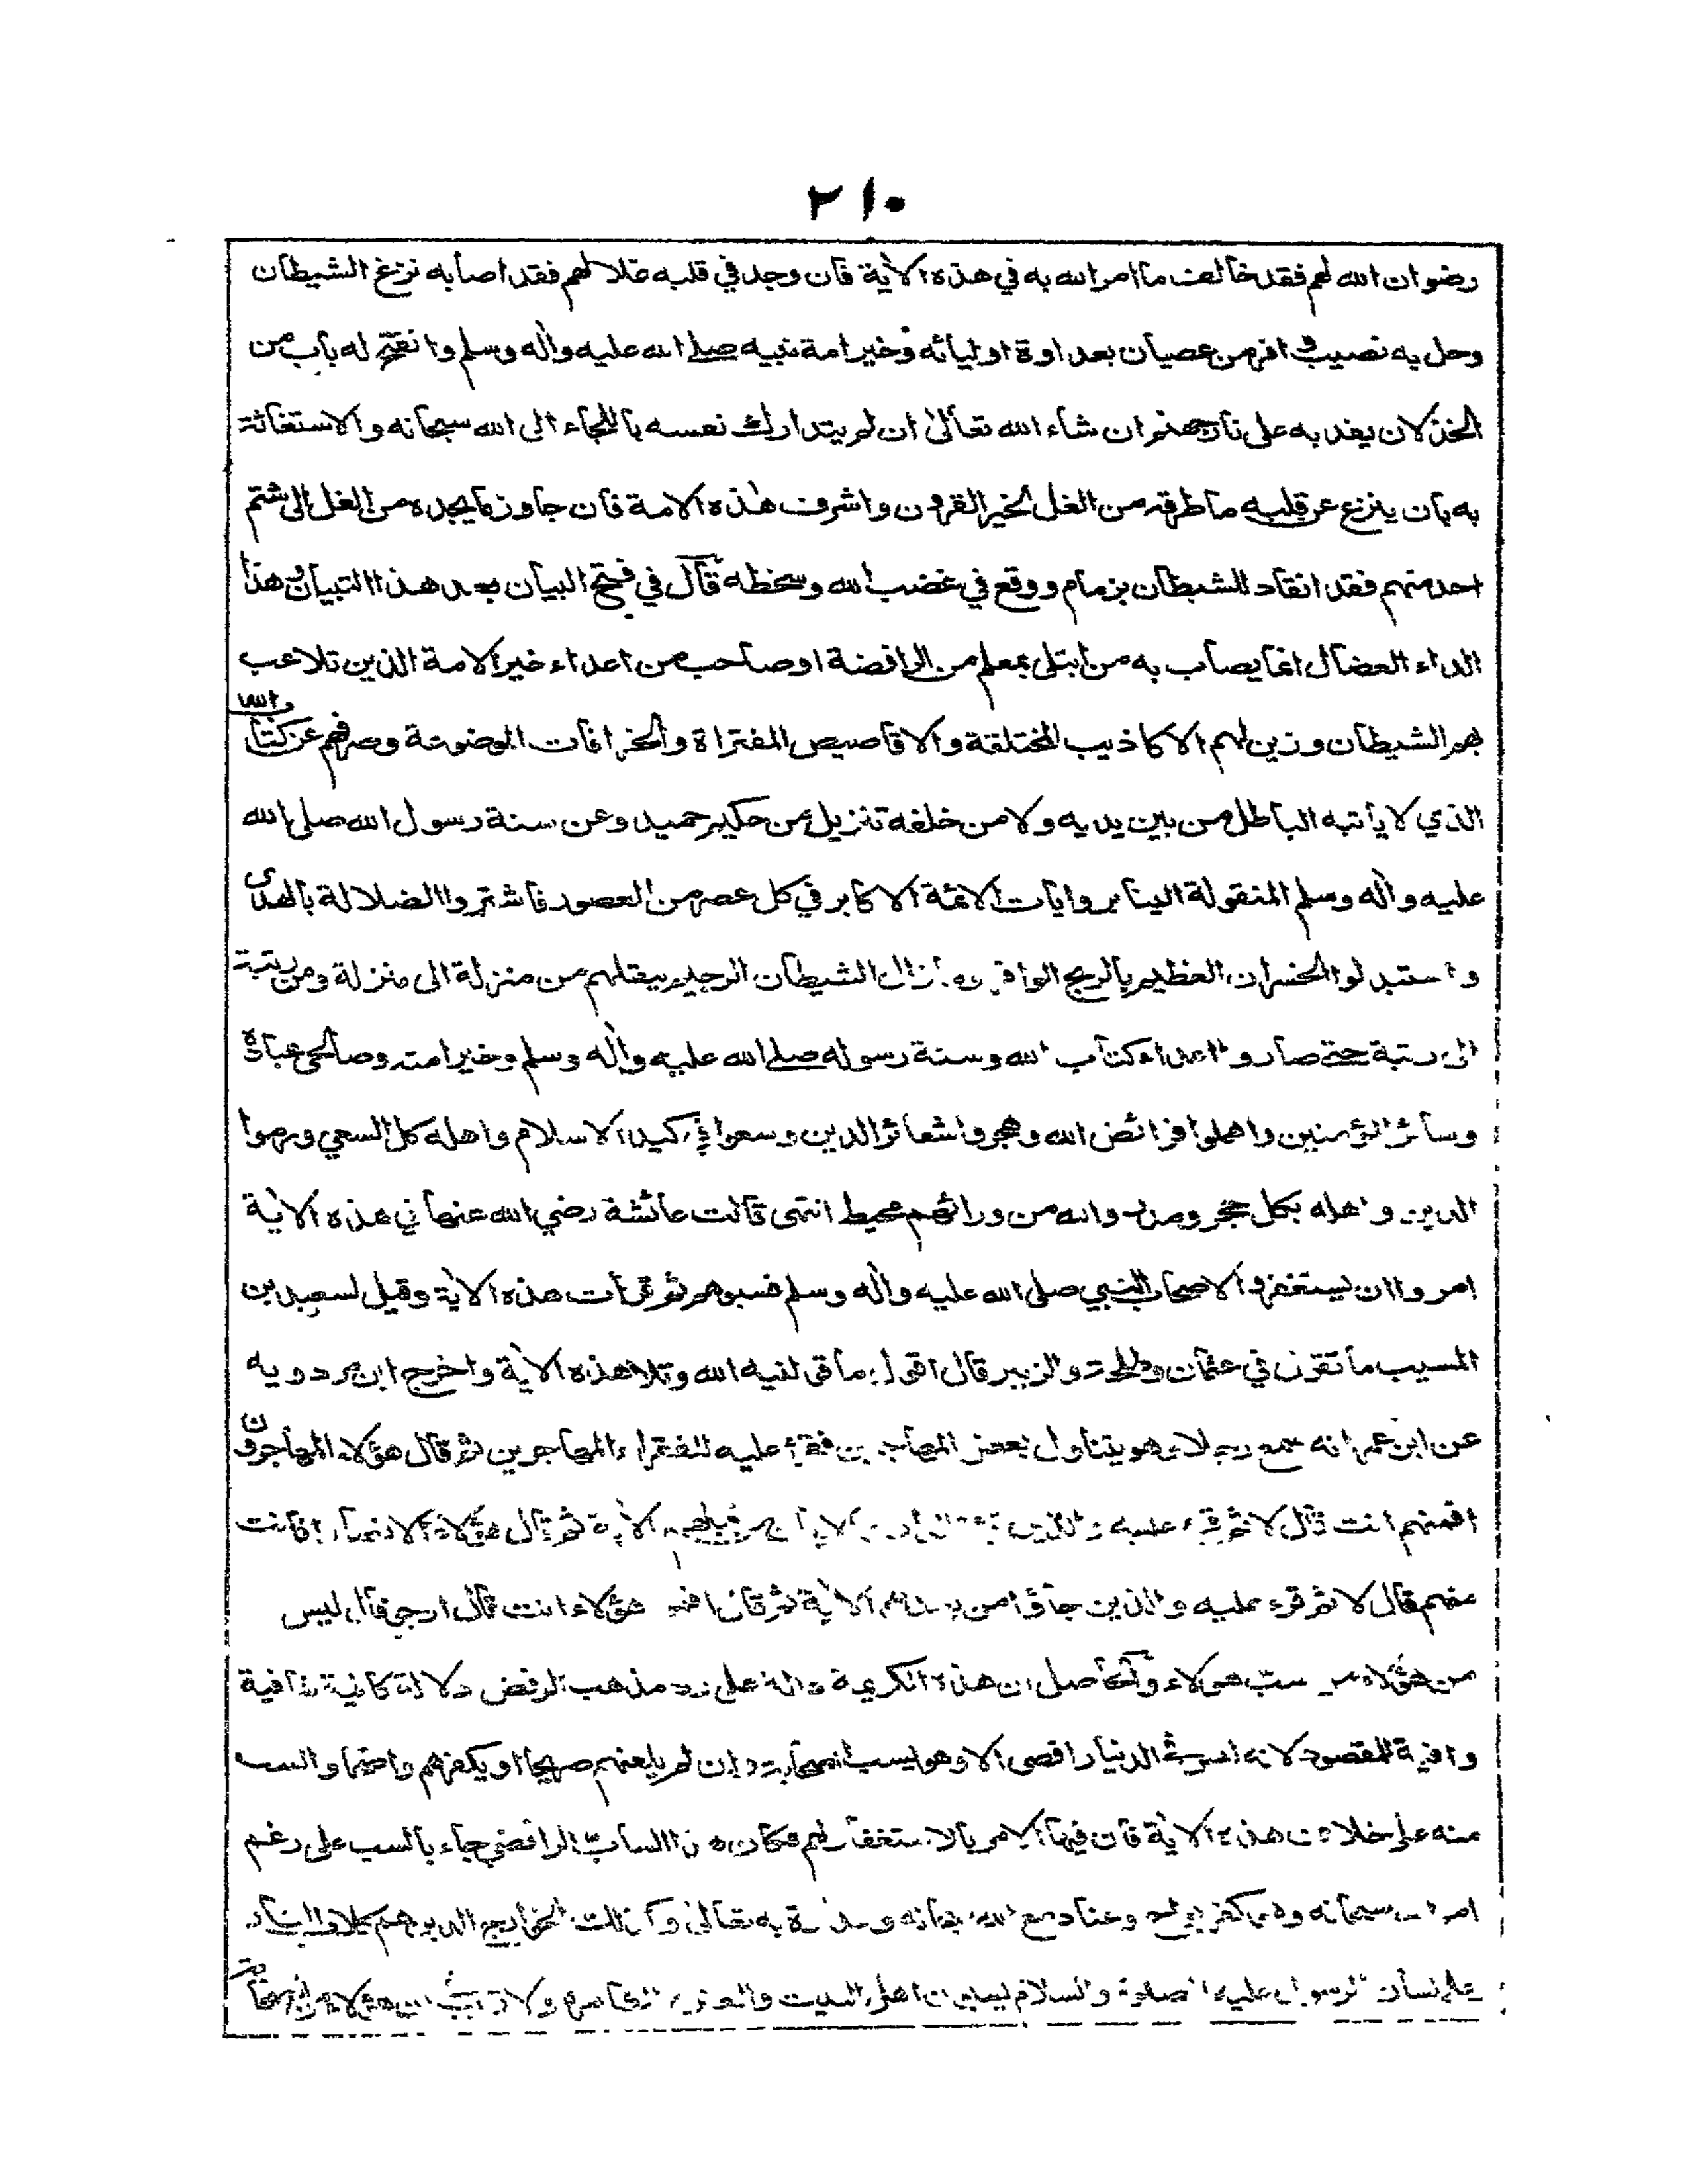 ٢١٠
رضوان الله لهم فقد خالف ما امر الله به في هذه الاية فان وجد في قلبه غلا لهم فقد اصابه نزغ الشيطان
وحل به نصيب وافر من عصيان بعداوة اوليائه وخير امة نبيه صلى الله عليه واٰله وسلم وانفتح له باب من
الخذلان يفد به على نار جهنم ان شاء الله تعالىٰ ان لم يتدارك نفسه باللجاء الى الله سبحانه والاستغاثة
به بان ينزع عن قلبه ما طرقه من الغل لخير القرون واشرف هٰذه الامة فان جاوز ما يجده من الغل الى شتم
احد منهم فقد انقاد للشيطان بزمام ووقع في غضب الله وسخطه قال في فتح البيان بعد هذا التبيان وهذا
الداء العضال انما يصاب به من ابتلى بمعلم من الرافضة او صاحب من اعداء خير الامة الذين تلاعب
بهم الشيطان وزين لهم الاكاذيب المختلقة والاقاصيص المفتراة والخرافات الموضوعة وصرفهم عن كتاب الله
الذي لا ياتيه الباطل من بين يديه ولا من خلفه تنزيل من حكيم حميد وعن سنة رسول الله صلى الله
عليه واٰله وسلم المنقولة الينا بروايات الائمة الاكابر في كل عصر من العصور فاشتروا الضلالة بالهدى
واستبدلوا الخسران العظيم بالربح الوافر وما زال الشيطان الرجيم ينقلهم من منزلة الى منزلة ومن رتبة
الى رتبة حتى صاروا اعداء كتاب الله وسنة رسوله صلى الله عليه واٰله وسلم وخير امته وصالحي عباده
وسائر المؤمنين واهملوا فرائض الله وهجروا شعائر الدين وسعوا في كيد الاسلام واهله كل السعي ورموا
الدين واهله بكل حجر ومدر والله من ورائهم محيط انتهى قالت عائشة رضي الله عنها في هذه الاٰية
امروا ان يستغفروا لاصحاب النبي صلى الله عليه واٰله وسلم فسبوهم ثم قرأت هذه الاٰية وقيل لسعيد بن
المسيب ما تقول في عثمان وطلحة والزبير قال اقول ما قولنيه الله وتلا هذه الاٰية واخرج ابن مردويه
عن ابن عمر انه سمع رجلا وهو يتناول بعض المهاجرين فقرأ عليه للفقراء المهاجرين ثم قال هؤلاء المهاجرون
افمنهم انت قال لا ثم قرء عليه والذين تبوؤا الدار والايمان من قبلهم الاٰية ثم قال هؤلاء الانصار افانت
منهم قال لا ثم قرء عليه والذين جاؤا من بعدهم الاٰية ثم قال افمن هؤلاء انت قال ارجو قال ليس
من هؤلاء من سبّ هؤلاء والحاصل ان هذه الكريمة دالة على رد مذهب الرفض دلالة كافية شافية
وافية للمقصود لانه ليس في الدنيا رافضي الا وهو يسب الصحابة وان لم يلعنهم صريحا او يكفرهم واضحا والسب
منه على خلاف هذه الاٰية فان فيها الامر بالاستغفار لهم فكان هذا السابّ الرافضي جاء بالسب على رغم
امر الله سبحانه وهٰذا كفر بواح وعناد مع الله سبحانه به تعالىٰ وكذلك الخوارج الذين هم كلاب النار
على لسان الرسول عليه الصلوة والسلام اهل البيت ولا ان هؤلاء